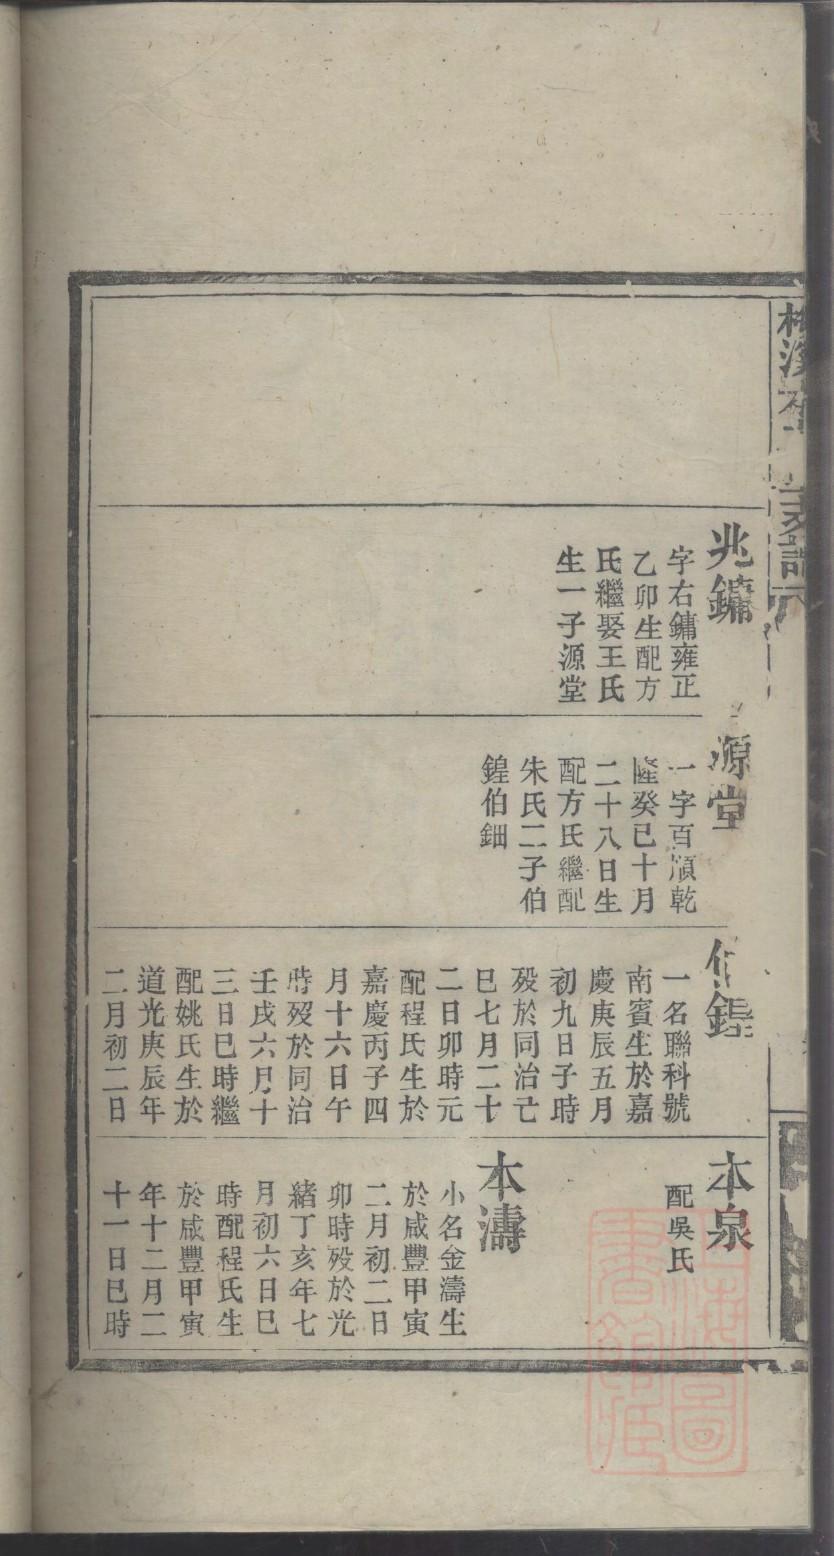 兆鏞
字右鏞雍正
乙卯生配方
氏繼娶王氏
生一子源堂
源堂
一字百順乾
隆癸巳十月
二十八日生
配方氏繼配
朱氏二子伯
鍠伯鈿
伯鍠
一名聯科號
南賓生於嘉
慶庚辰五月
初九日子時
歿於同治己
巳七月二十
二日卯時元
配程氏生於
嘉慶丙子四
月十六日午
時歿於同治
壬戌六月十
三日巳時繼
配姚氏生於
道光庚辰年
二月初二日
本泉
配吳氏
本濤
小名金濤生
於咸豐甲寅
二月初二日
卯時歿於光
緒丁亥年七
月初六日巳
時配程氏生
於咸豐甲寅
年十二月二
十一日巳時
上海圖
書館藏